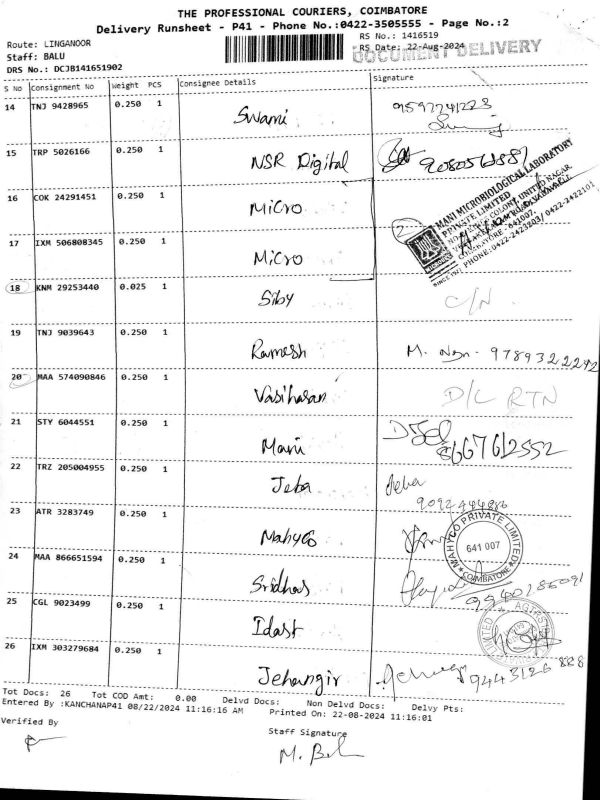 THE PROFESSIONAL COURIERS, COIMBATORE
Delivery Runsheet - P41 - Phone No.:0422-3505555 - Page No.:2
Route: LINGANOOR
RS No.: 1416519
Staff: BALU
RS Date: 22-Aug-2024
DOCUMENT DELIVERY
DRS No.: DCJB141651902
S No Consignment No Weight PCS Consignee Details Signature
14 TNJ 9428965 0.250 1 Swami
15 TRP 5026166 0.250 1 NSR Digital
16 COK 24291451 0.250 1 Micro
MANI MICROBIOLOGICAL LABORATORY
PRIVATE LIMITED
COIMBATORE - 641007
SINCE 1971 PHONE: 0422-2423203/ 0422-2422101
17 IXM 506808345 0.250 1 Micro
18 KNM 29253440 0.025 1 Siby C/N
19 TNJ 9039643 0.250 1 Ramesh
20 MAA 574090846 0.250 1 Vasiharan D/L RTN
21 STY 6044551 0.250 1 Mani 8667612552
22 TRZ 205004955 0.250 1 Jeba Jeba
23 ATR 3283749 0.250 1 Mahyco
MAHYCO PRIVATE LIMITED
641 007
COIMBATORE
24 MAA 866651594 0.250 1 Sridhar
25 CGL 9023499 0.250 1 Idast
26 IXM 303279684 0.250 1 Jehangir 9443126828
Tot Docs: 26 Tot COD Amt: 0.00 Delvd Docs: Non Delvd Docs: Delvy Pts:
Entered By :KANCHANAP41 08/22/2024 11:16:16 AM Printed On: 22-08-2024 11:16:01
Verified By
Staff Signature